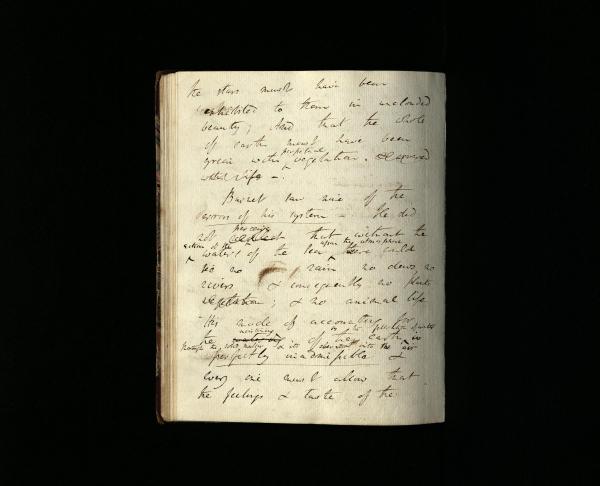 the stars must have been
exhibited to them in unclouded
beauty; And that the whole
of earth must have been
green with perpetual vegetation. &
with life –
Burnet saw none of the
errors of his system – He did
not perceive that without the
action of the
waters of the sea upon the atmosphere there could
be no rain no dews, no
rivers & consequently no plants
vegetation; & no animal life
This mode of accounting for
the of the earth
through the & its with the air
is perfectly inadmissible &
every one must allow that
the feelings & taste of the